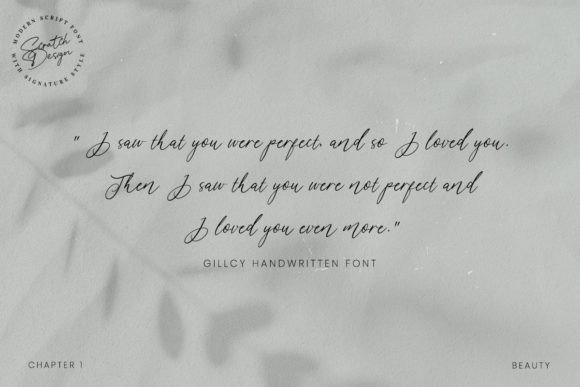 MODERN SCRIPT FONT
Scratch
Design
WITH SIGNATURE STYLE
" I saw that you were perfect, and so I loved you.
Then I saw that you were not perfect and
I loved you even more."
GILLCY HANDWRITTEN FONT
CHAPTER 1
BEAUTY